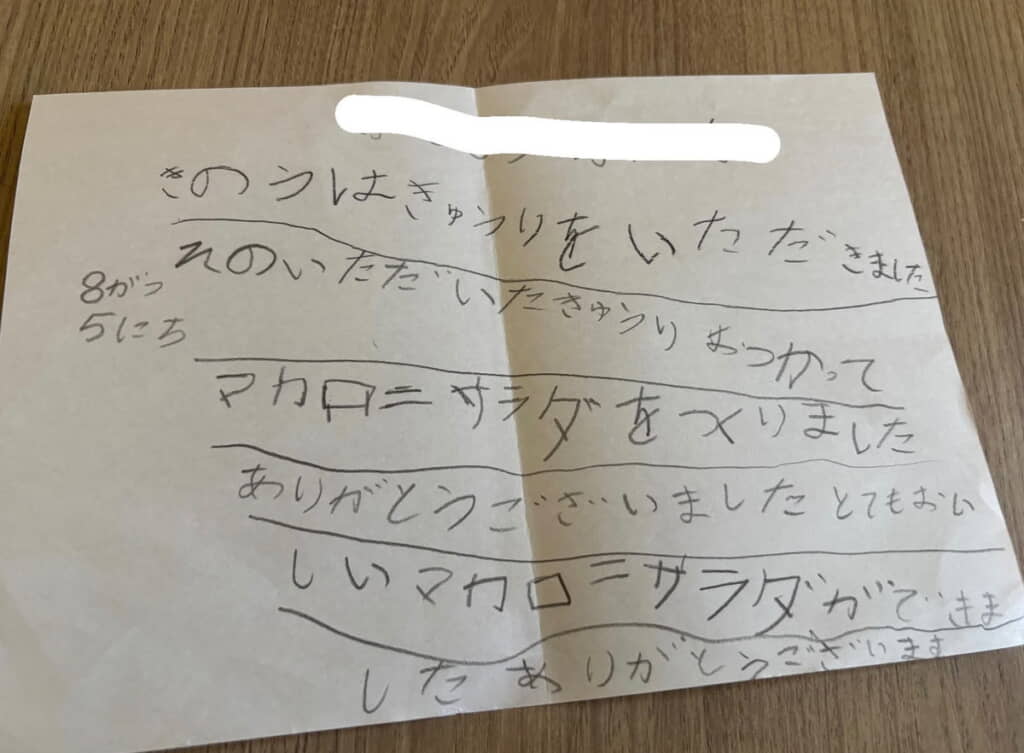 きのうはきゅうりをいただきました
そのいただいたきゅうりおつかって
8がつ
5にち
マカロニサラダをつくりました
ありがとうございました とてもおい
しいマカロニサラダができま
したありがとうございます